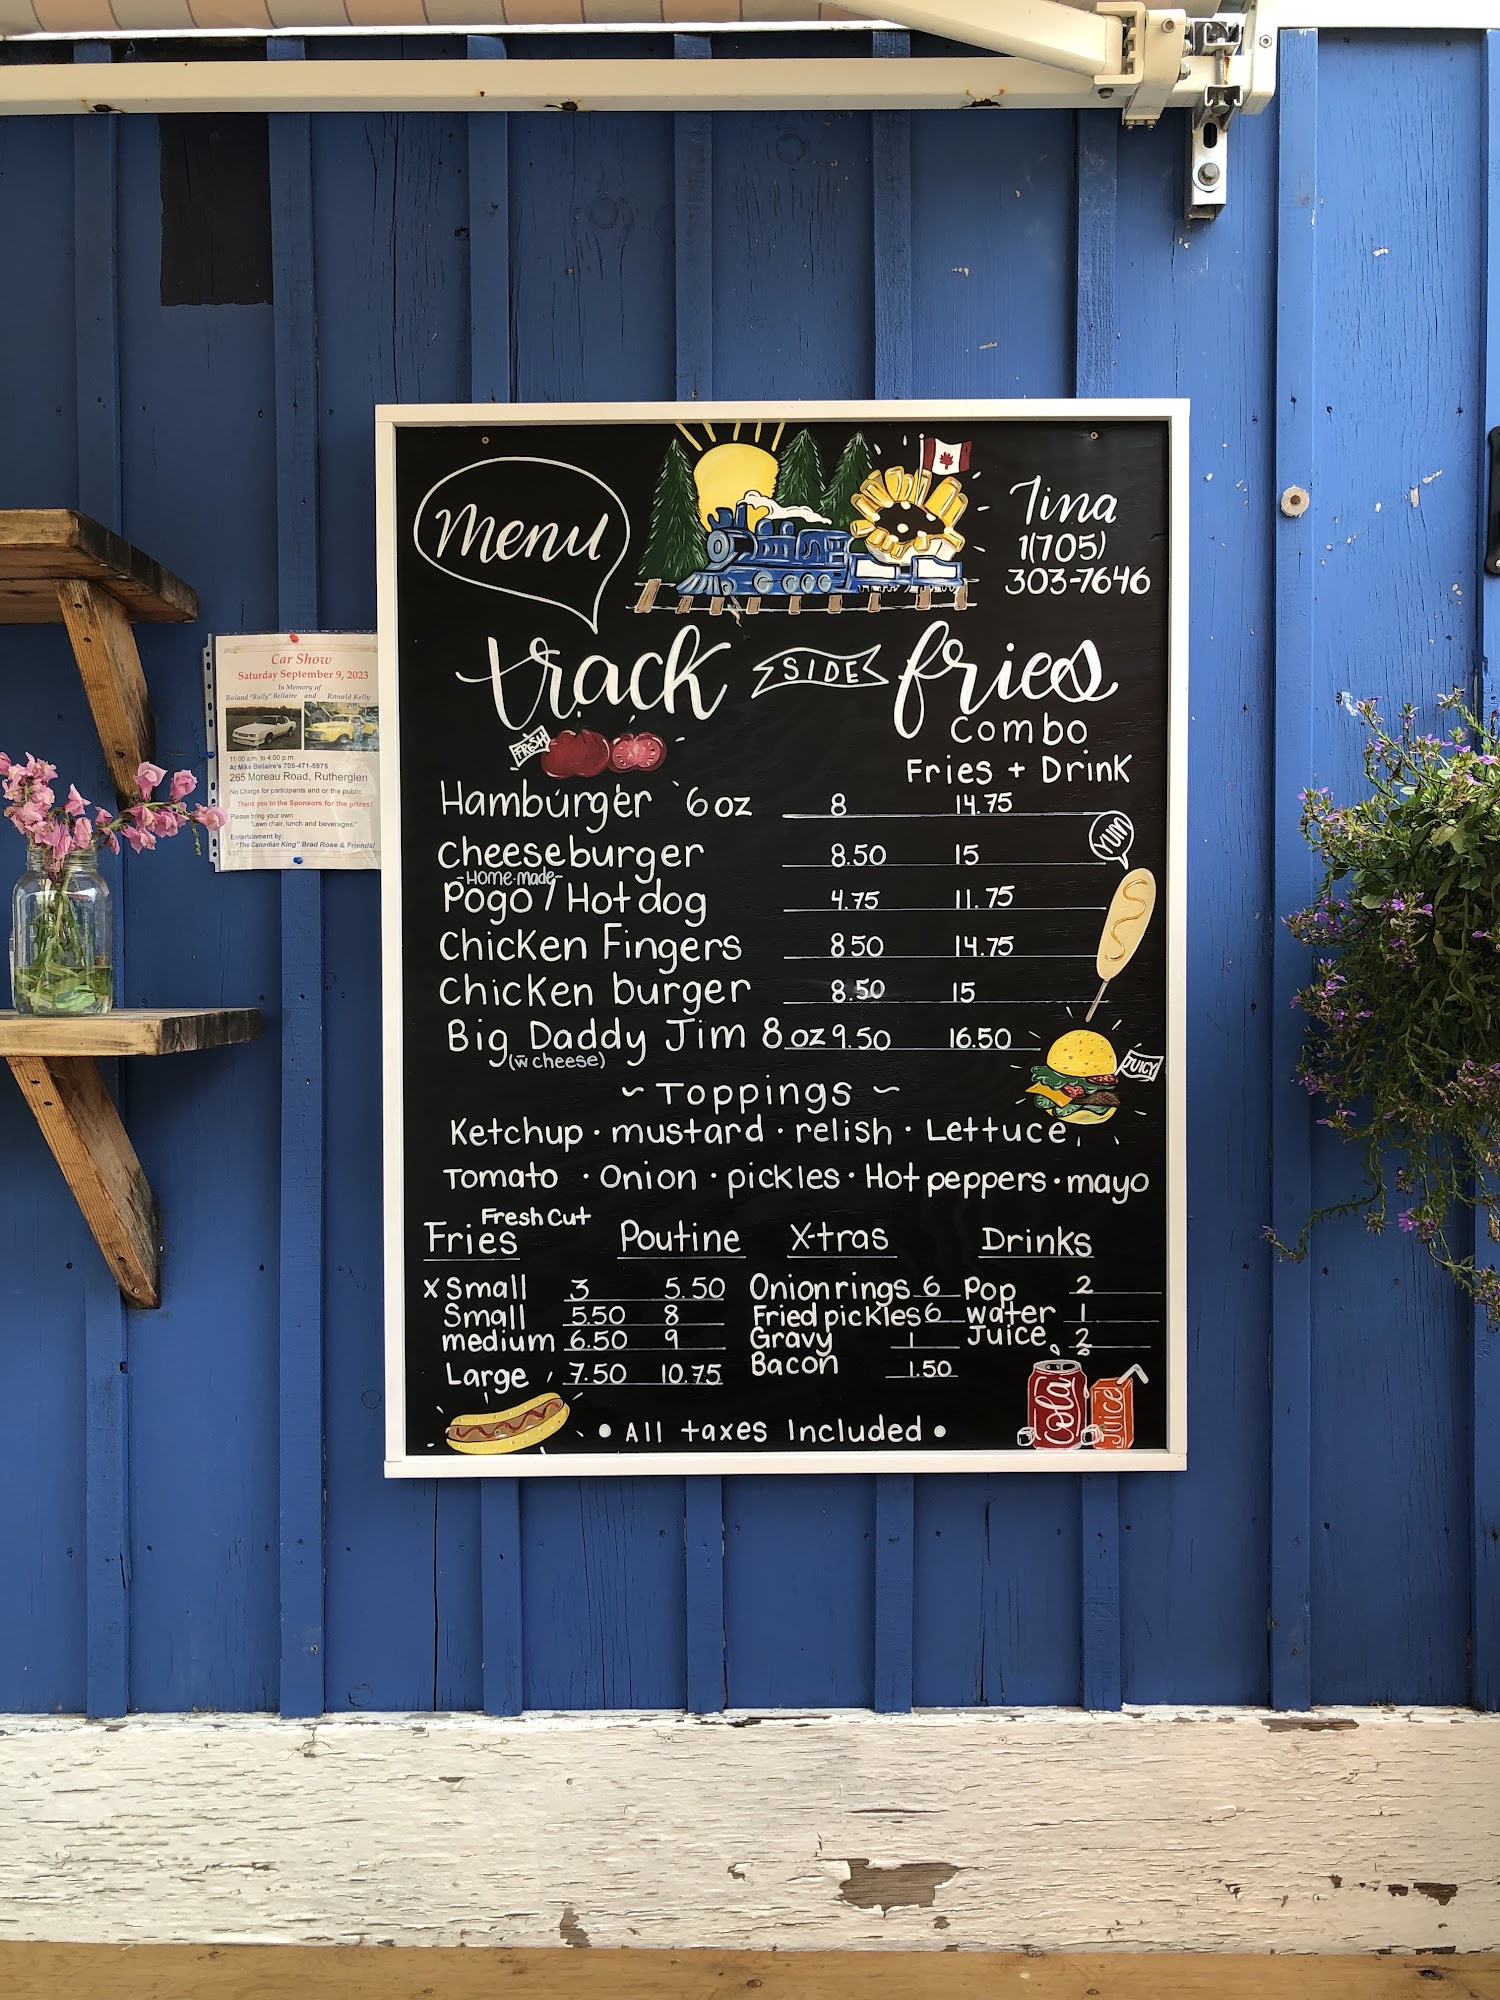 Menu
Tina
1(705)
303-7646
Track SIDE fries
FRESH
Combo
Fries + Drink
Hamburger 6oz 8 14.75
YUM
Cheeseburger 8.50 15
-Home-made-
Pogo / Hot dog 4.75 11.75
Chicken Fingers 850 14.75
Chicken burger 8.50 15
Big Daddy Jim 8oz 9.50 16.50
(w̄ cheese)
JUICY
~ Toppings ~
Ketchup · mustard · relish · Lettuce
Tomato · Onion · pickles · Hot peppers · mayo
Fresh Cut
Fries Poutine X-tras Drinks
x Small 3 5.50 Onion rings 6 Pop 2
Small 5.50 8 Fried pickles 6 water 1
medium 6.50 9 Gravy 1 Juice 2
Large 7.50 10.75 Bacon 1.50
• All taxes Included •
Cola
Juice
Car Show
Saturday September 9, 2023
In Memory of
Roland "Rolly" Bellaire and Ronald Kelly
11:00 a.m. to 4:00 p.m.
At Mike Bellaire's 705-471-5975
265 Moreau Road, Rutherglen
No Charge for participants and or the public
Thank you to the Sponsors for the prizes!
Please bring your own
"Lawn chair, lunch and beverages!"
Entertainment by:
"The Canadian King" Brad Rose & Friends!